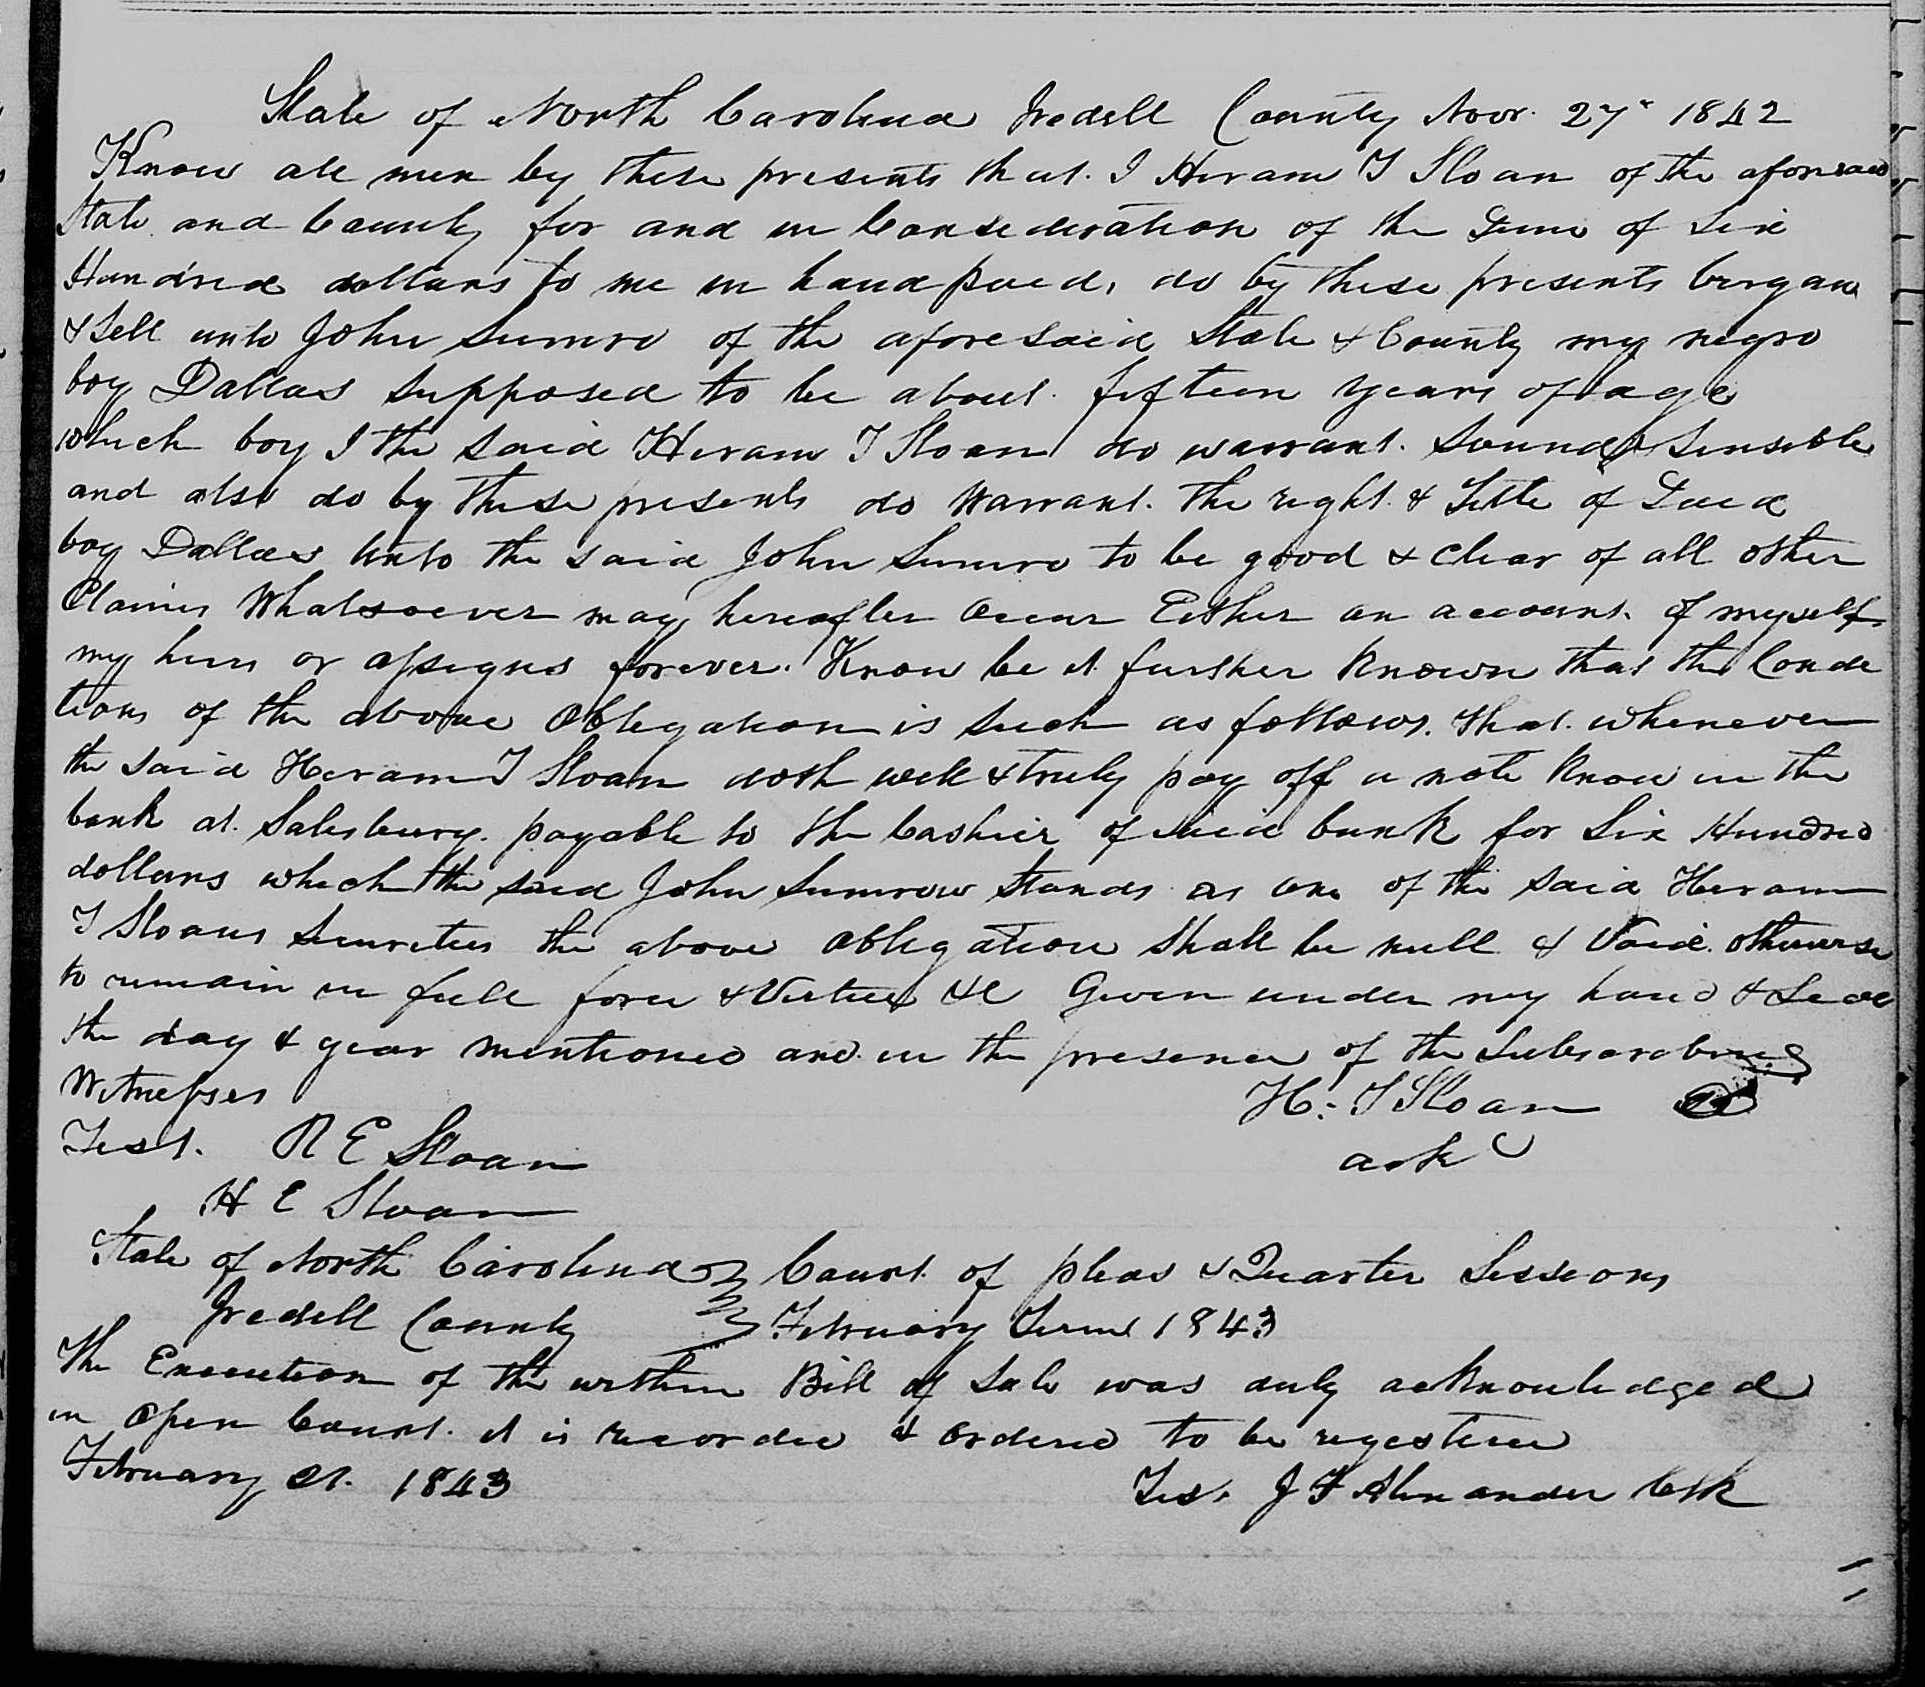 State of North Carolina Iredell County Novr. 27th 1842
Know all men by these presents that I Hiram T Sloan of the aforesaid
State and County for and in Consideration of the Sum of Six
Hundred dollars to me in hand paid, do by these presents bargain
& Sell unto John Sumro of the aforesaid State & County my negro
boy Dallas supposed to be about fifteen years of age
which boy I the said Hiram T Sloan do warrant Sound & Sensible
and also do by these presents do Warrant the right & Title of Said
boy Dallas Unto the said John Sumro to be good & clear of all other
Claims Whatsoever may hereafter Occur Either on account of myself
my heirs or assigns forever. Know be it further Known that the Condi
tions of the above Obligation is such as follows. that whenever
the said Hiram T Sloan doth well & truly pay off a note Know in the
bank at Salisbury payable to the Cashier of said bank for Six Hundred
dollars which the said John Sumrow stands as one of the said Hiram
T Sloans Securities the above Obligation shall be null & Void otherwise
to remain in full force & Virtue &c Given under my hand & Seal
the day & year mentioned and in the presence of the Subscribing
Witnesses
H. T Sloan
Test. R E Sloan
H E Sloan
State of North Carolina Court of pleas & Quarter Sessions
Iredell County February Term 1843
The Execution of the within Bill of Sale was duly acknowledged
in Open Court it is recorded & ordered to be registered
February 21. 1843
Test J F Alexander Clk